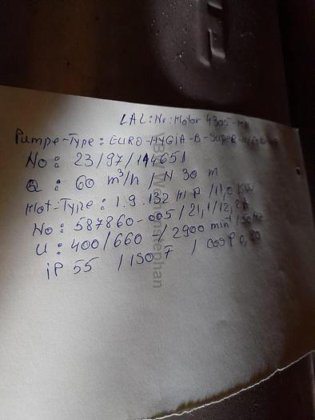 LAL: Nr: Motor 4300-
Pumpe-Type: EURO-HYGIA-B-SUPER-
No: 23/97/144651
Q: 60 m³/h / N 30 m
Mot-Type: 1.9.132 M P / 11,0 KW
No: 587860-005/21,1/12,2A
U: 400/660 / 2900 min⁻¹ / 50 Hz
iP 55 / ISO F / cos P